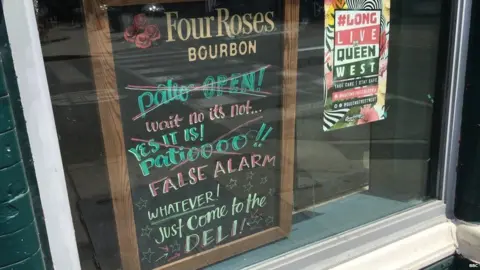 Four Roses
BOURBON
patio OPEN!
wait no it's not...
YES IT IS!
patioooo!!
FALSE ALARM
WHATEVER!
Just come to the
DELI!
#LONG
LIVE
QUEEN
WEST
BBC